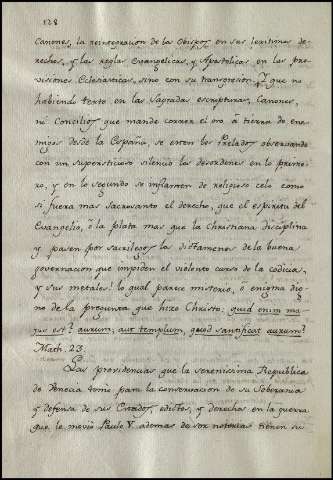 128
Canones, la reintegracion de los Obispos en sus legitimos de-
rechos, y las reglas Evangelicas, y Apostolicas en las pro-
visiones Eclesiasticas, sino con su transgresion. Y que no
habiendo texto en las Sagradas escripturas, Canones,
ni Concilios que mande correr el oro á tierra de ene-
migos desde la España, se esten los Prelados observando
con un supersticioso silencio los desordenes en lo prime-
ro, y en lo segundo se inflamen de religioso celo como
si fuera mas sacrosanto el derecho, que el espiritu del
Evangelio, ó la plata mas que la Christiana disciplina
y pasen por sacrilegos los dictamenes de la buena
governacion que impiden el violento curso de la codicia,
y sus metales! lo qual parece misterio, ó enigma dig-
no de la pregunta que hizo Christo: quid enim ma-
jus est? aurum, aut templum, quod santificat aurum?
Math. 23.
Las providencias que la serenissima Republica
de Venecia tomó para la conservacion de su Soberania
y defensa de sus Estados, edictos, y derechos en la guerra
que le movio Paulo V. ademas de ser notorias tienen su